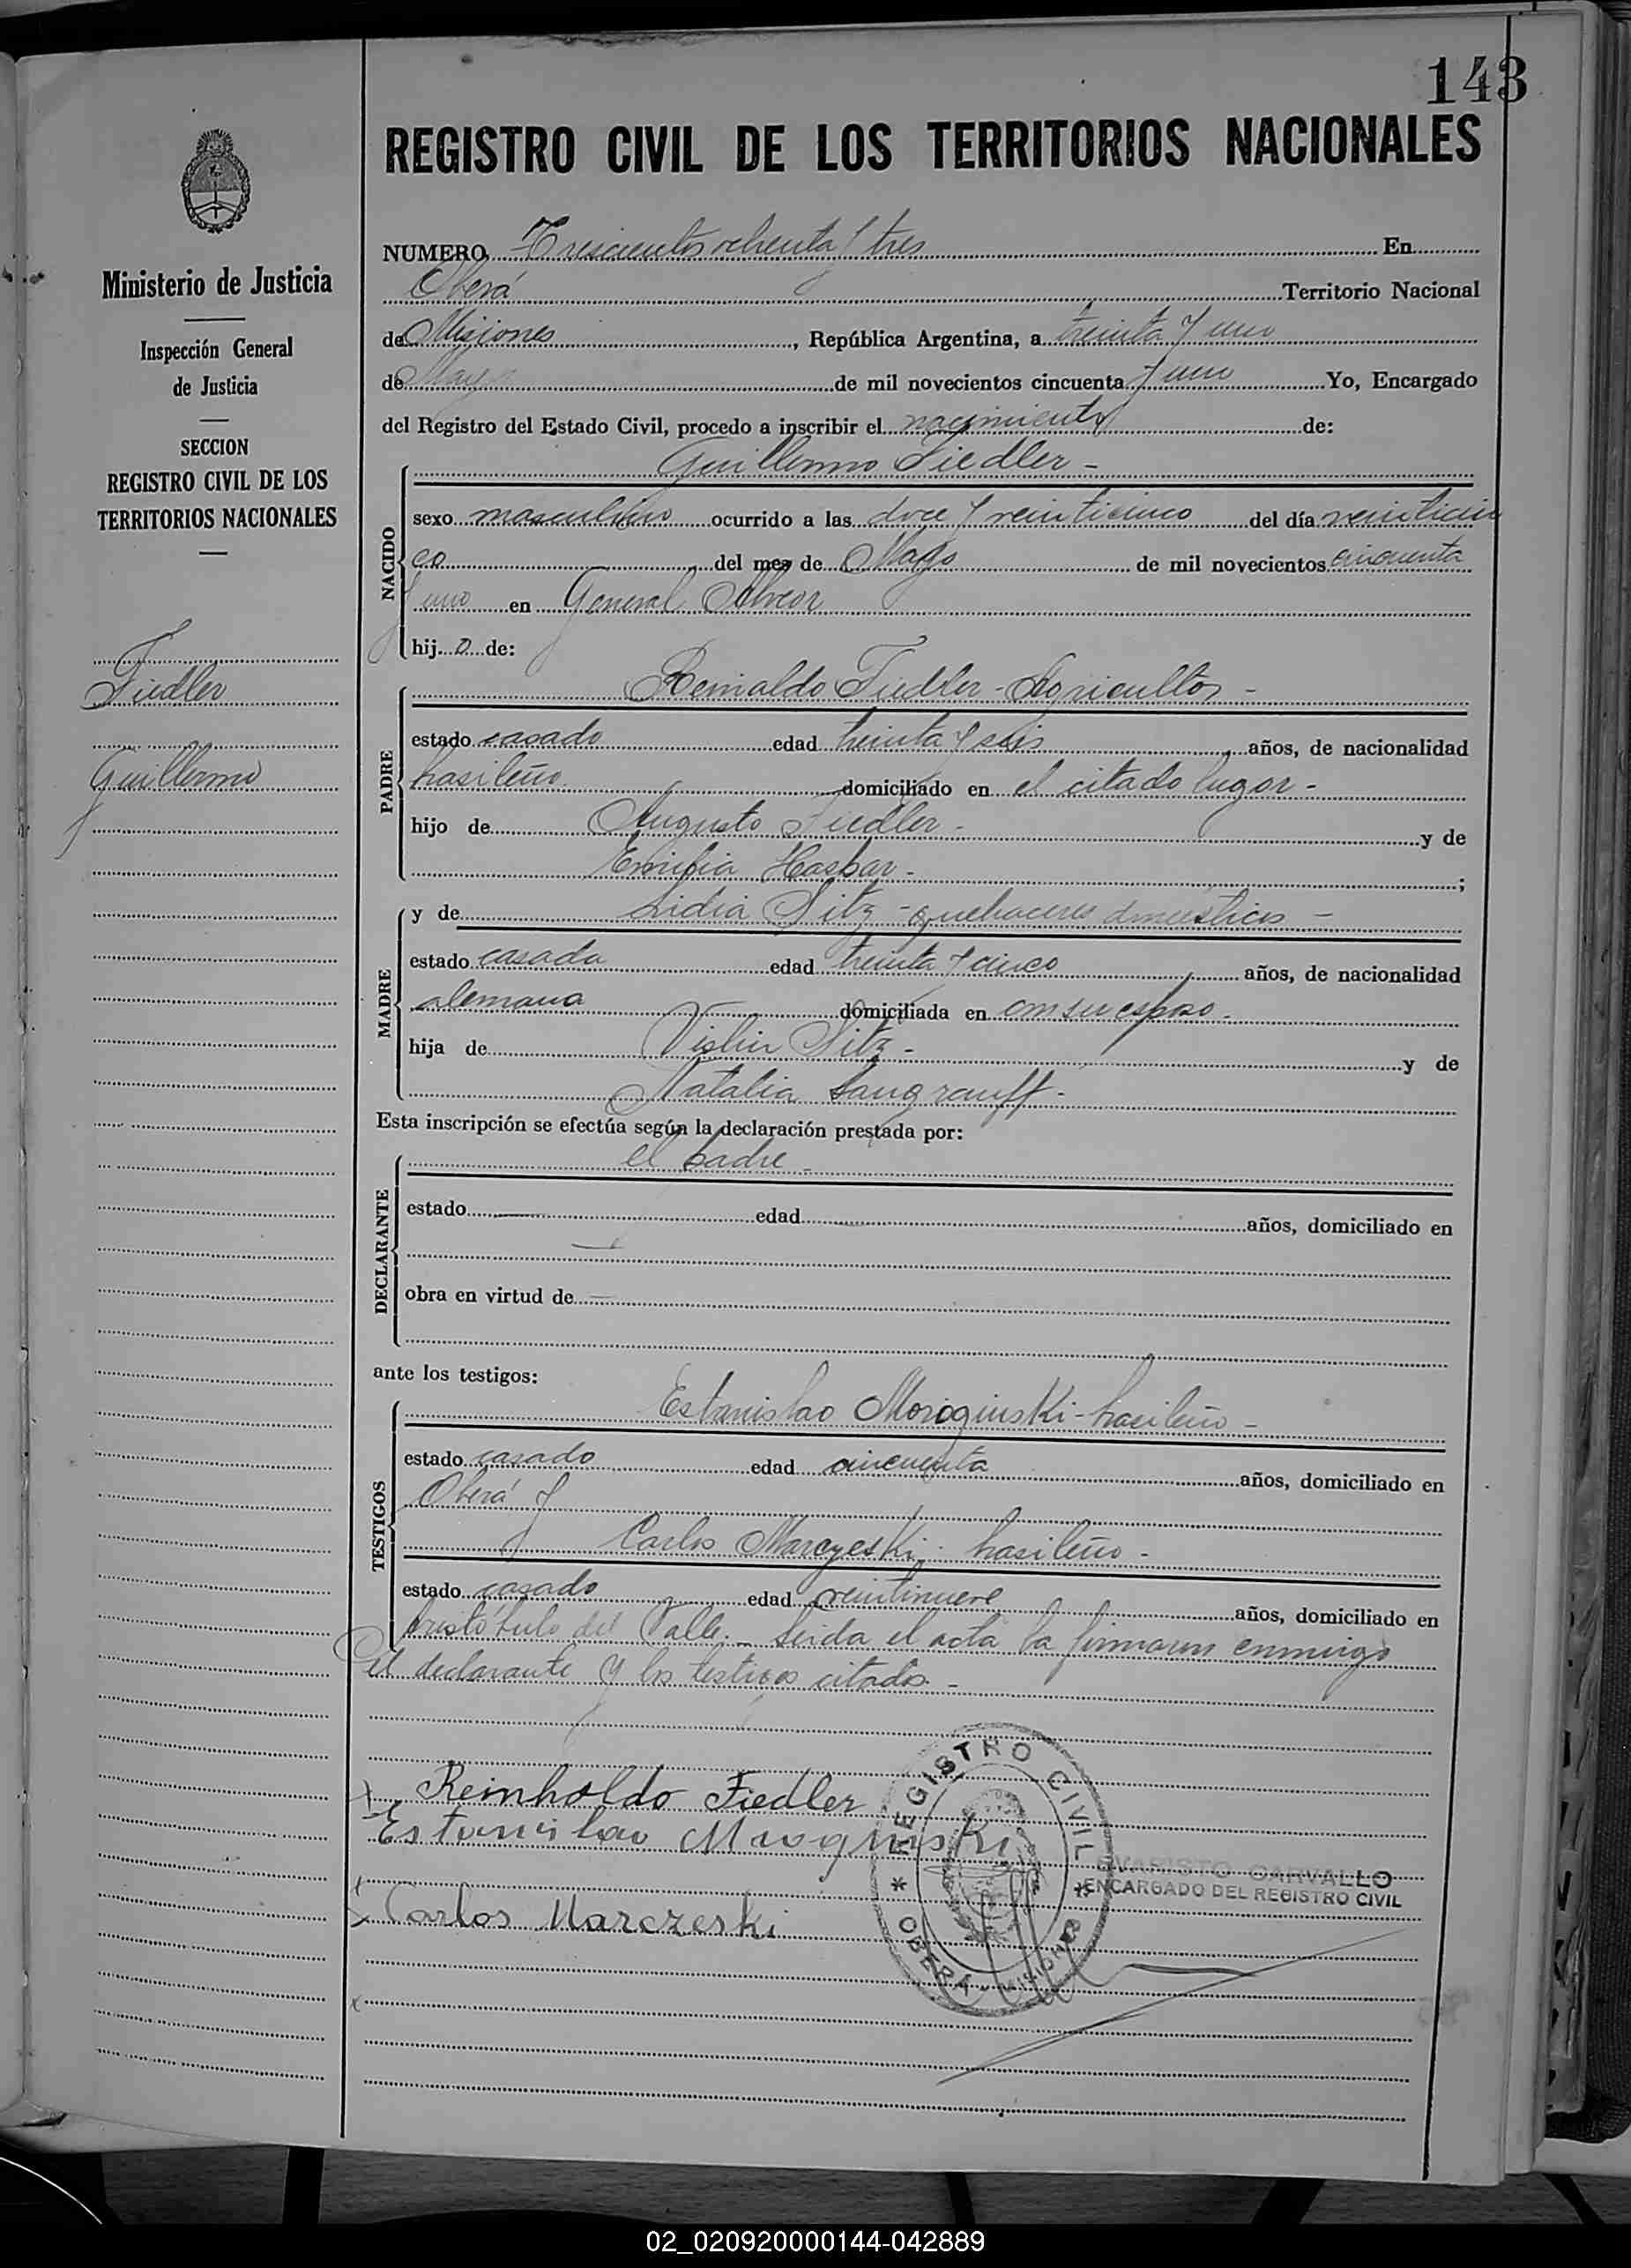 143
REGISTRO CIVIL DE LOS TERRITORIOS NACIONALES
Ministerio de Justicia
Inspección General
de Justicia
SECCION
REGISTRO CIVIL DE LOS
TERRITORIOS NACIONALES
Fiedler
Guillermo
NUMERO Trescientos ochenta y tres En
Oberá Territorio Nacional
de Misiones, República Argentina, a treinta y uno
de Mayo de mil novecientos cincuenta y uno Yo, Encargado
del Registro del Estado Civil, procedo a inscribir el nacimiento de:
Guillermo Fiedler -
NACIDO
sexo masculino ocurrido a las doce y veinticinco del día veinticin
co del mes de Mayo de mil novecientos cincuenta
y uno en General Alvear
hijo de:
Reinaldo Fiedler - Agricultor -
PADRE
estado casado edad treinta y seis, años, de nacionalidad
brasileño domiciliado en el citado lugar -
hijo de Augusto Fiedler - y de
Emilia Hasbar - ;
MADRE
y de Lidia Sitz - quehaceres domésticos -
estado casada edad treinta y cinco, años, de nacionalidad
alemana domiciliada en con su esposo -
hija de Sitz - y de
Natalia Langranff -
Esta inscripción se efectúa según la declaración prestada por:
el padre -
DECLARANTE
estado edad años, domiciliado en
obra en virtud de
ante los testigos:
Estanislao Moroginski - brasileño -
TESTIGOS
estado casado edad cincuenta años, domiciliado en
Oberá y
Carlos Marczeski - brasileño -
estado casado edad veintinueve años, domiciliado en
Aristóbulo del Valle. - Leida el acta la firmaron conmigo
el declarante y los testigos citados. -
Reinholdo Fiedler
Estanislao
Carlos Marczeski
REGISTRO CIVIL
* OBERÁ - MISIONES *
EVARISTO CARVALLO
ENCARGADO DEL REGISTRO CIVIL
02_020920000144-042889